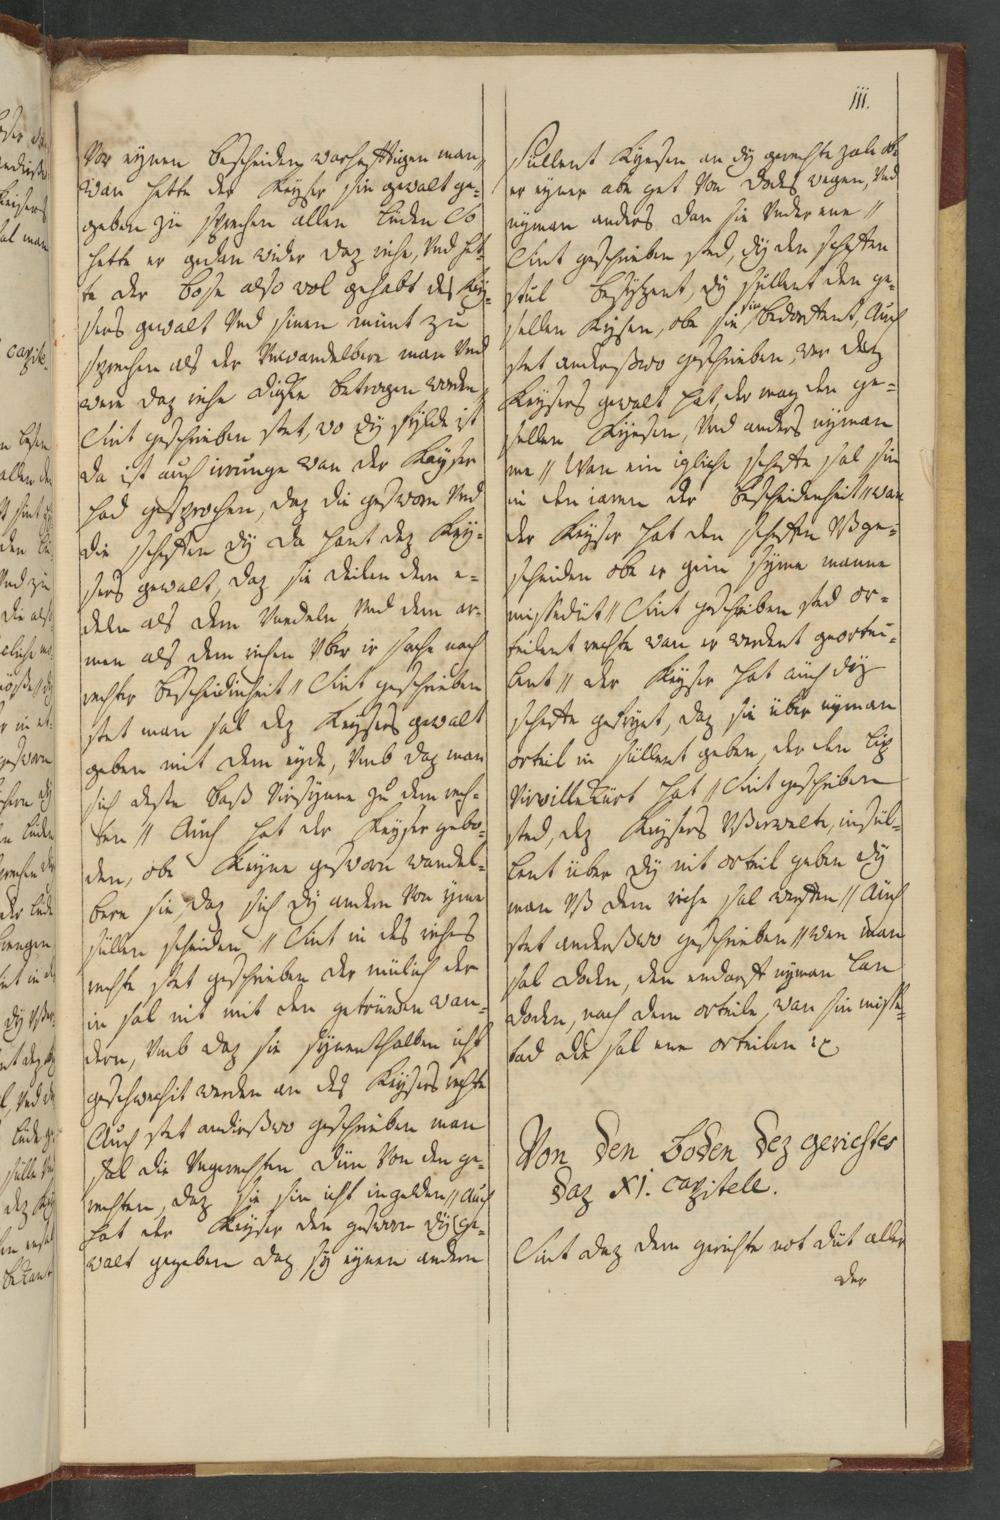 iii.
Vor eynen bescheiden warhafftigen man,
wan hette der Keyser sin gewalt ge-
geben zü sprechen allen Luden So
hette er gedan wider daz riche, Vnd het-
te der bose also wol gehabt des Key-
sers gewalt Vnd sinen munt zu
sprechen als der Vnwandelbere man Vnd
were daz riche dicke betrogen worden
Sint geschrieben stet, wo dy schlde ist
da ist auch irrunge wan der Keyser
had gesprochen, daz die gesworn Vnd
die scheffen dy da hant dez Key-
sers gewalt, daz sie deilen dem e-
deln als dem Vnedeln, Vnd dem ar-
men als dem richen Vber ir sache nach
rechter bescheidinheit // Sint geschrieben
stet man sal dez Keysers gewalt
geben mit dem eyde, Vmb daz man
sich deste baß Virsynne zu dem rech-
ten // Auch hat der Keyser gebo-
den, obe Keyne gesworn wandel-
bere sie, daz sich dy andern Von yme
sullen scheiden // Sint in des riches
rechte stet geschrieben der mülich der
in sal nit mit den getruwen wan-
dern, Vmb daz sie synenthalben icht
geschwechit werden an des Keysers rechte
Auch stet andirßwo geschrieben man
sal die Vngerechten dün Von den ge-
rechten, daz sie sin icht ingelden // Auch
hat der Keyser den gesworn dy ge-
walt gegeben daz sy eynen andern
Sullent Kyesen an dy gerechte zale ob
er eyner abe get Von dodes wegen, Vnd
nyman anders dan sie Vnder ene //
Sint geschrieben sted, dy den scheffen
stul besitzent, dy sullent den ge-
sellen Kysen, obe sie sin bedorffent, Auch
stet anderßwo geschrieben, wer dez
Keysers gewalt hat, der mag den ge-
sellen Kyesen, Vnd anders nyman
me // Wan ein igliche scheffe sal sin
in den iaren der bescheidenheit // wan
der Keyser hat den scheffen Vßge-
scheiden obe er gein syme manne
missedüt // Sint geschrieben sted or-
teilent rechte wan er werdent georter-
lent // der Keyser hat auch dy
scheffe gefryet, daz sie über nyman
orteil in süllent geben, der den Lip
Virwillekürt hat // Sint geschrieben
sted, dez Keysers Vßerwelte, insül-
lent über dy nit orteil geben dy
man Vß dem riche sal werffen // Auch
stet anderßwo geschrieben // wen man
sal doden, den endarff nyman Lan
doden, nach dem orteile, wan sin misse-
tad die sal ene orteilen ꝛc.
Von den boden dez gerichtes
daz XI. capitele.
Sint daz dem gerichte not düt aller
der